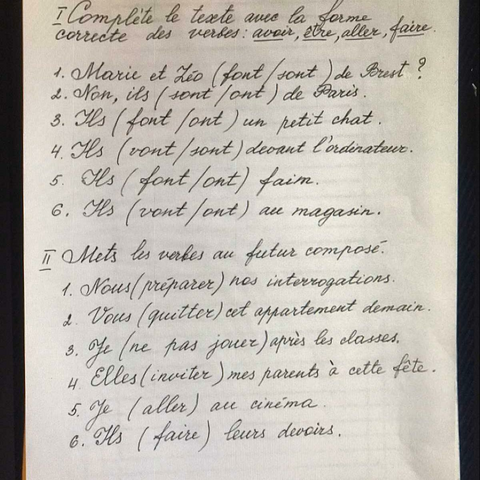 I Complète le texte avec la forme
correcte des verbes: avoir, être, aller, faire.
1. Marie et Léo (font/sont) de Brest ?
2. Non, ils (sont/ont) de Paris.
3. Ils (font/ont) un petit chat.
4. Ils (vont/sont) devant l'ordinateur.
5. Ils (font/ont) faim.
6. Ils (vont/ont) au magasin.
II Mets les verbes au futur composé.
1. Nous (préparer) nos interrogations.
2. Vous (quitter) cet appartement demain.
3. Je (ne pas jouer) après les classes.
4. Elles (inviter) mes parents à cette fête.
5. Je (aller) au cinéma.
6. Ils (faire) leurs devoirs.